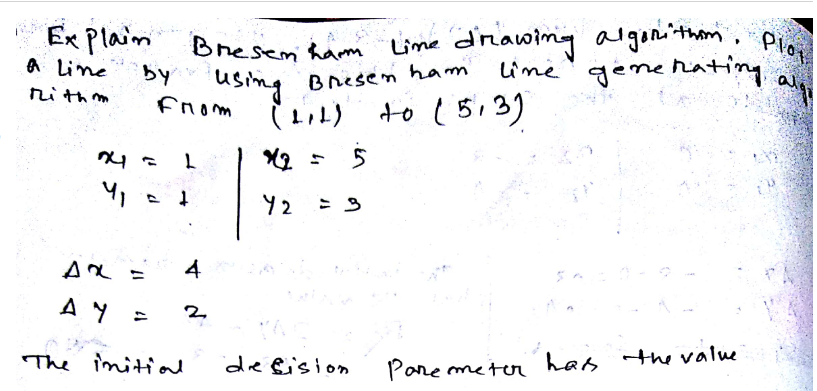 Explain Bresenham Line drawing algorithm. Plot
a Line by using Bresenham line generating algo
rithm From (1,1) to (5,3)
x1 = 1 | x2 = 5
y1 = 1 | y2 = 3
Δx = 4
Δy = 2
The initial decision Parameter has the value